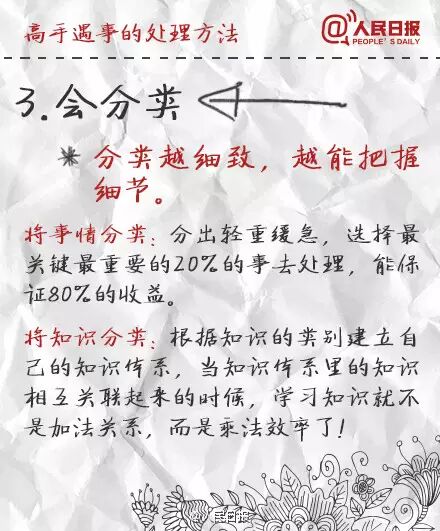 高手遇事的处理方法
@人民日报
PEOPLE'S DAILY
3.会分类
* 分类越细致，越能把握
细节。
将事情分类：分出轻重缓急，选择最
关键最重要的20%的事去处理，能保
证80%的收益。
将知识分类：根据知识的类别建立自
己的知识体系，当知识体系里的知识
相互关联起来的时候，学习知识就不
是加法关系，而是乘法效率了！
民日报